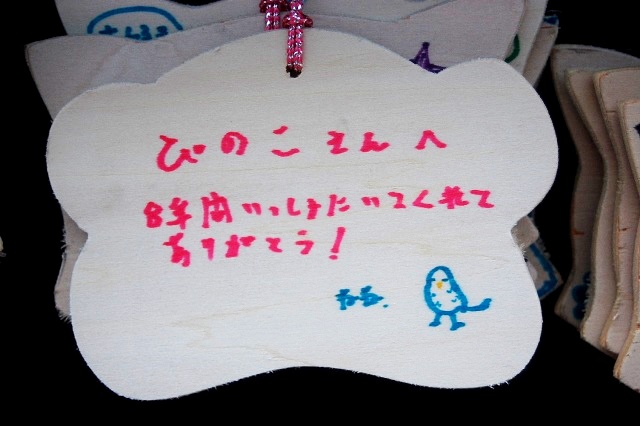 ぴのこさんへ
8年間いっしょにいてくれて
ありがとう!